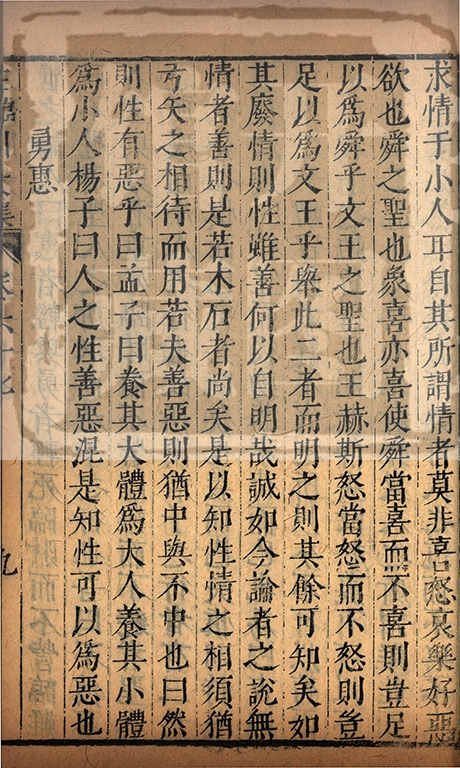 求情于小人耳自其所謂情者莫非喜怒哀樂好惡
欲也舜之聖也象喜亦喜使舜當喜而不喜則豈足
以爲舜乎文王之聖也王赫斯怒當怒而不怒則豈
足以爲文王乎舉此二者而明之則其餘可知矣如
其廢情則性雖善何以自明哉誠如今論者之說無
情者善則是若木石者尚矣是以知性情之相須猶
弓矢之相待而用若夫善惡則猶中與不中也曰然
則性有惡乎曰孟子曰養其大體爲大人養其小體
爲小人楊子曰人之性善惡混是知性可以爲惡也
勇惠
九